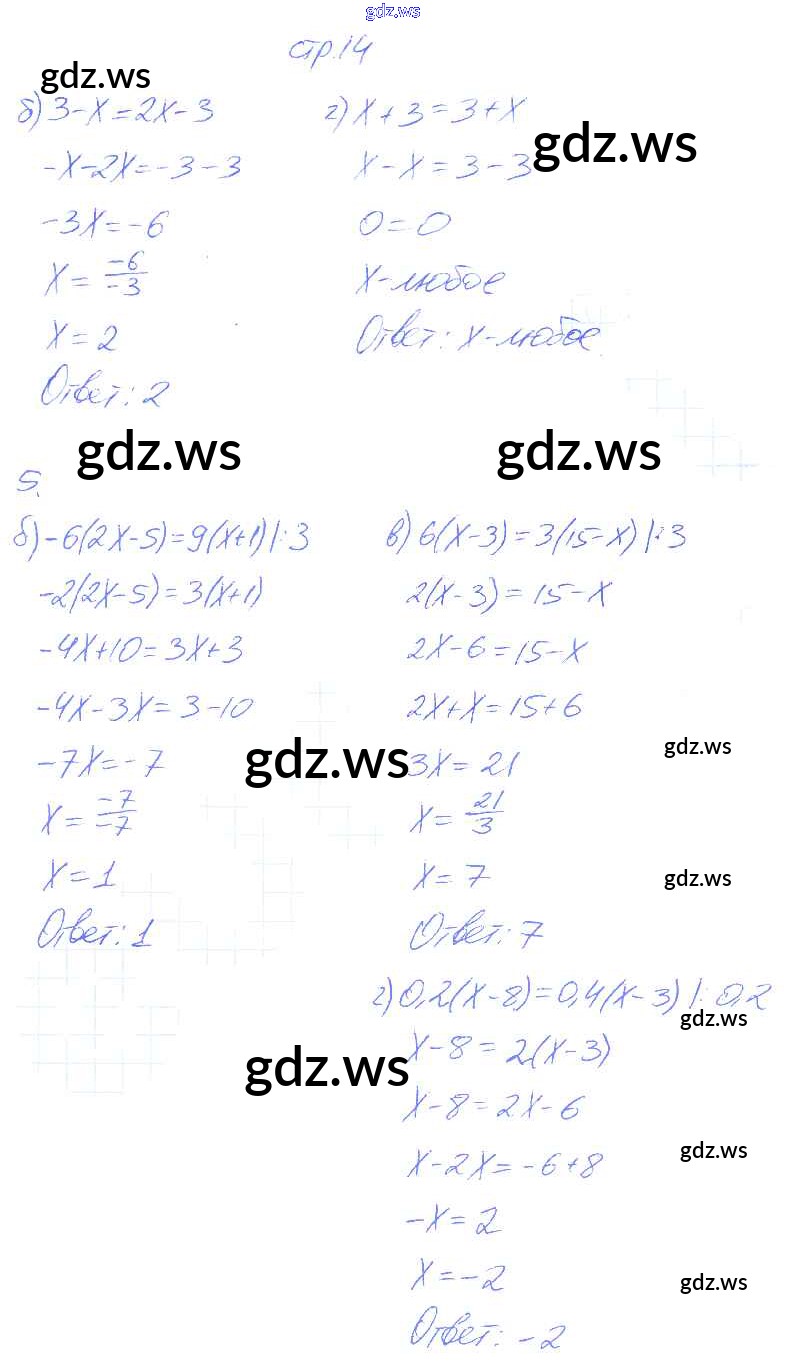 gdz.ws
стр.14
gdz.ws
б) 3-x=2x-3
-x-2x=-3-3
-3x=-6
x=-6/-3
x=2
Ответ: 2
г) x+3=3+x
gdz.ws
x-x=3-3
0=0
x-любое
Ответ: x-любое
gdz.ws
gdz.ws
5.
б) -6(2x-5)=9(x+1) |:3
-2(2x-5)=3(x+1)
-4x+10=3x+3
-4x-3x=3-10
-7x=-7
x=-7/-7
x=1
Ответ: 1
в) 6(x-3)=3(15-x) |:3
2(x-3)=15-x
2x-6=15-x
2x+x=15+6
gdz.ws
gdz.ws
3x=21
x=21/3
x=7
gdz.ws
Ответ: 7
г) 0,2(x-8)=0,4(x-3) |:0,2
gdz.ws
x-8=2(x-3)
gdz.ws
x-8=2x-6
x-2x=-6+8
gdz.ws
-x=2
x=-2
gdz.ws
Ответ: -2